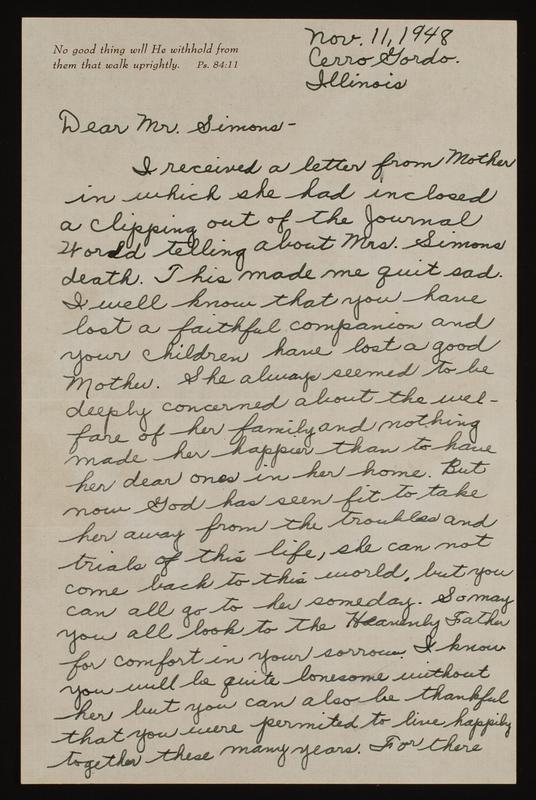 No good thing will He withhold from
them that walk uprightly. Ps. 84:11
Nov. 11, 1948
Cerro Gordo.
Illinois
Dear Mr. Simons -
I received a letter from Mother
in which she had inclosed
a clipping out of the Journal
World telling about Mrs. Simons
death. This made me quit sad.
I well know that you have
lost a faithful companion and
your children have lost a good
Mother. She always seemed to be
deeply concerned about the wel-
fare of her family and nothing
made her happier than to have
her dear ones in her home. But
now God has seen fit to take
her away from the troubles and
trials of this life, she can not
come back to this world, but you
can all go to her someday. So may
you all look to the Heavenly Father
for comfort in your sorrow. I know
you will be quite lonesome without
her but you can also be thankful
that you were permited to live happily
together these many years. For there